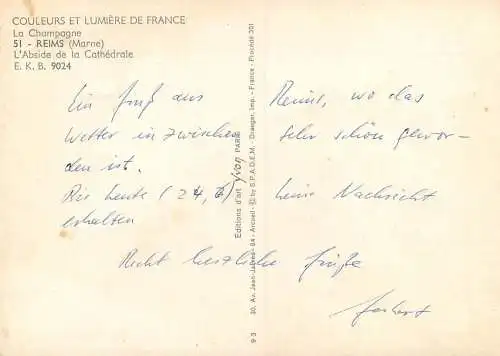 COULEURS ET LUMIÈRE DE FRANCE
La Champagne
51 - REIMS (Marne)
L'Abside de la Cathédrale
E. K. B. 9024
Ein Gruß aus Reims, wo das
Wetter inzwischen sehr schön gewor-
den ist.
Bis heute (24, 6) keine Nachricht
erhalten
Recht herzliche Grüße
Herbert
Editions d'art yvon PARIS
30, Av. Jean-Jaurès - 94 - Arcueil - © by S.P.A.D.E.M. - Draeger, Imp. - France - Procédé 301
9 3